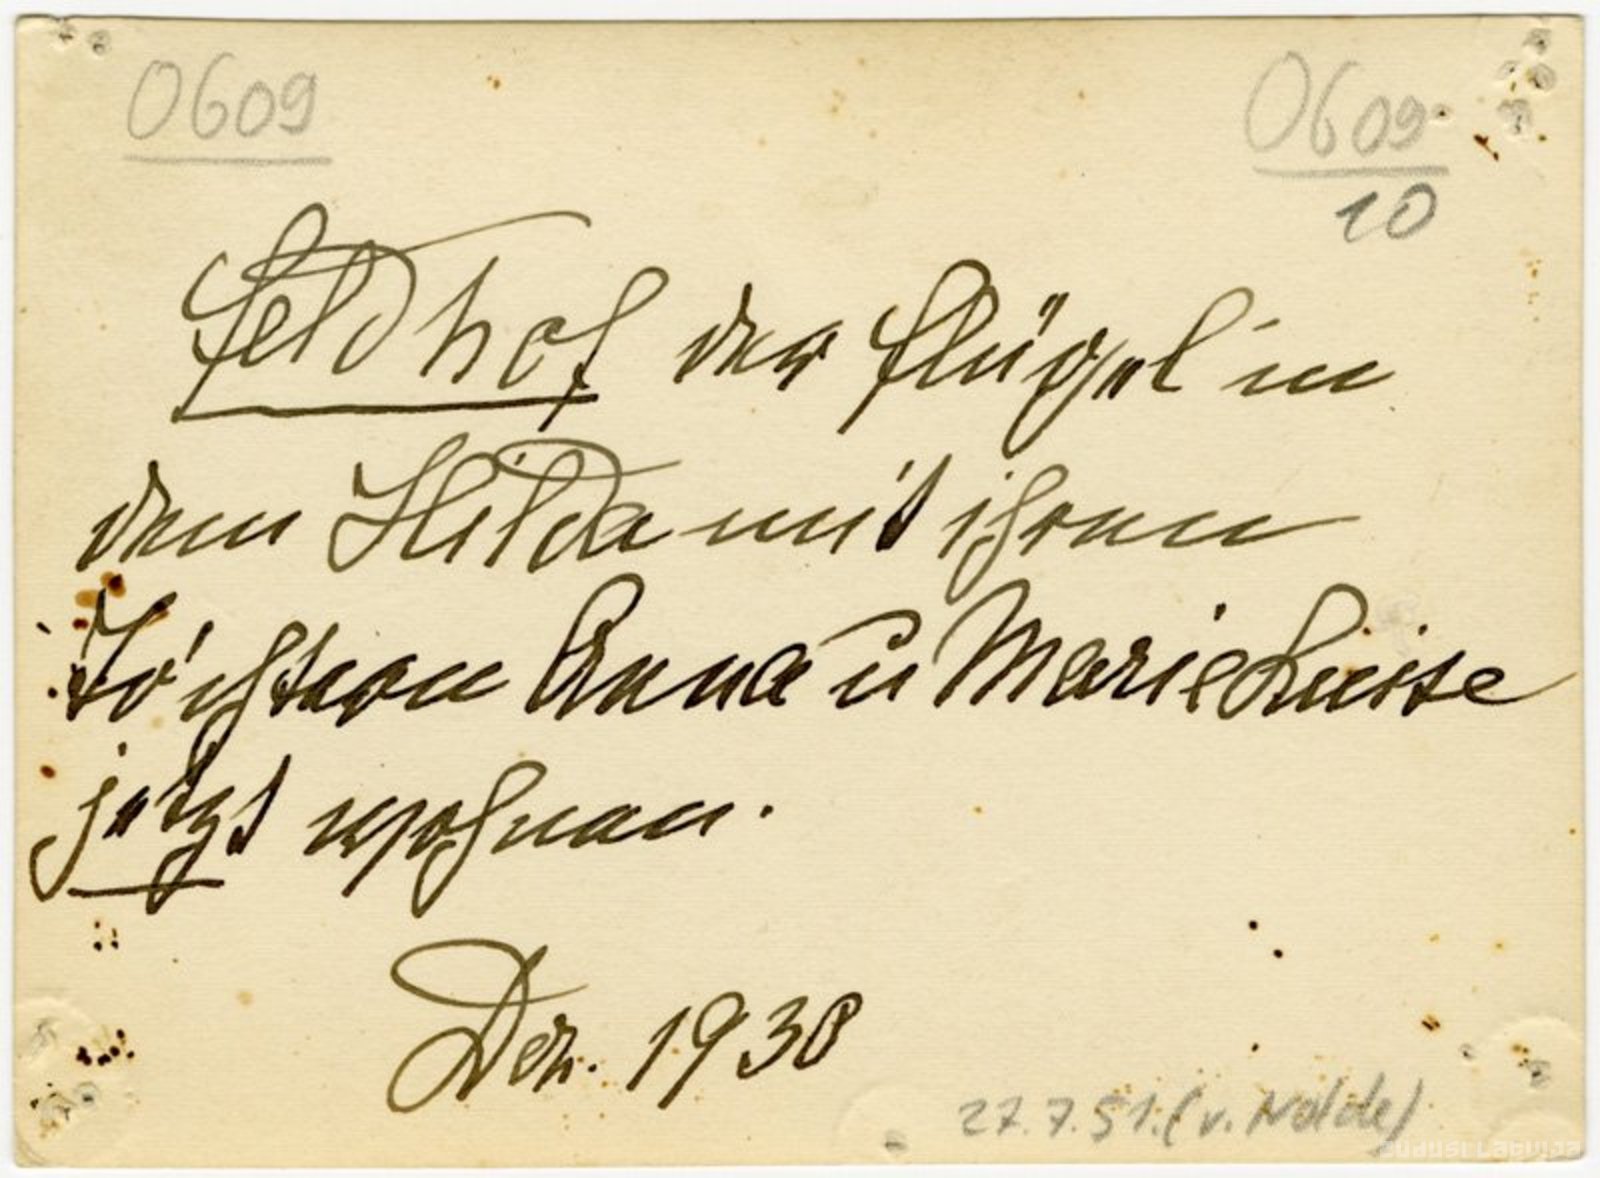 0609 0609
10
Feldhof der Flügel in
dem Hilda mit ihren
Töchtern Anna u Marie Luise
jetzt wohnen.
Dez. 1938
27.7.51. (v. Nolde)
zudusi Latvija